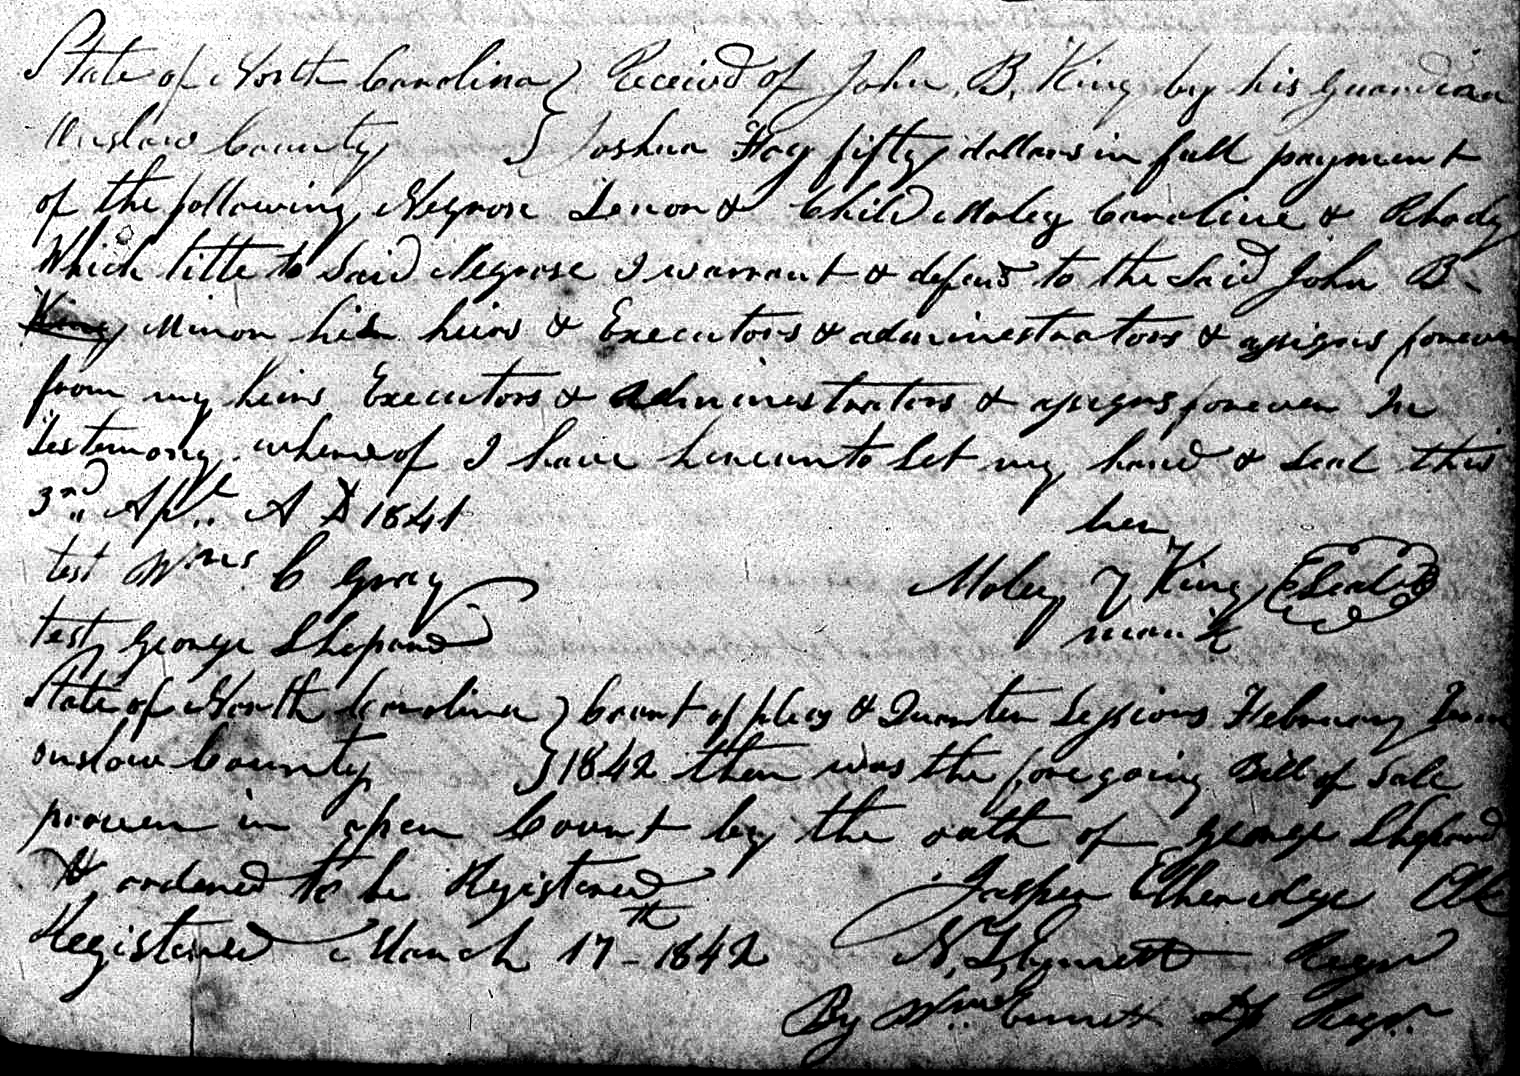 State of North Carolina } Receivd of John B. King by his guardian
Onslow County } Joshua Hay fifty dollars in full payment
of the following Negrose Lenor & Child Maley Caroline & Rhody
Which title to Said Negrose I warrant & defend to the Said John B
King Minor his heirs & Executors & administrators & assigns forever
from my heirs Executors & administrators & assigns forever In
Testemony whereof I have hereunto Set my hand & Seal this
3rd Apl A D 1841
her
test Wms C Gray Maley King Seal
mark
test George Shepard
State of North Carolina } Court of pleas & Quarter Sessions February Term
onslow County } 1842 then was the foregoing Bill of Sale
proven in open Court by the oath of George Shepard
& ordered to be Registered Jasper Etheridge Clk
Registered March 17th 1842 Regr
By Wm Ennett Dp Regr